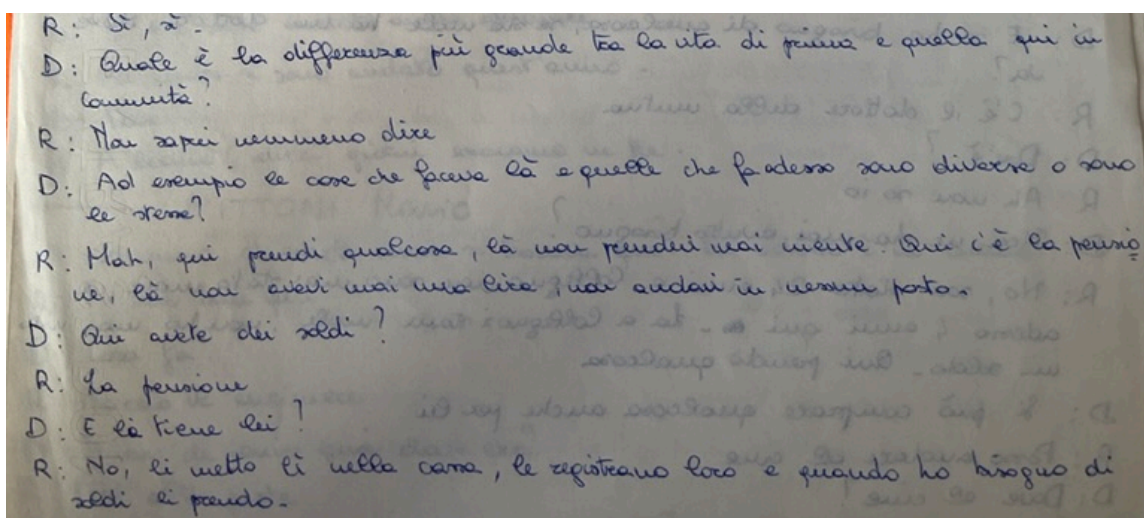 R: Sì, sì.
D: Quale è la differenza più grande tra la vita di prima e quella qui in
Comunità?
R: Non saprei nemmeno dire
D: Ad esempio le cose che faceva là e quelle che fa adesso sono diverse o sono
le stesse?
R: Mah, qui prendi qualcosa, là non prendevi mai niente. Qui c'è la pensio
ne, là non avevi mai una lira, non andavi in nessun posto.
D: Qui avete dei soldi?
R: La pensione
D: E la tiene lei?
R: No, li metto lì nella cassa, le registrano loro e quando ho bisogno di
soldi li prendo.